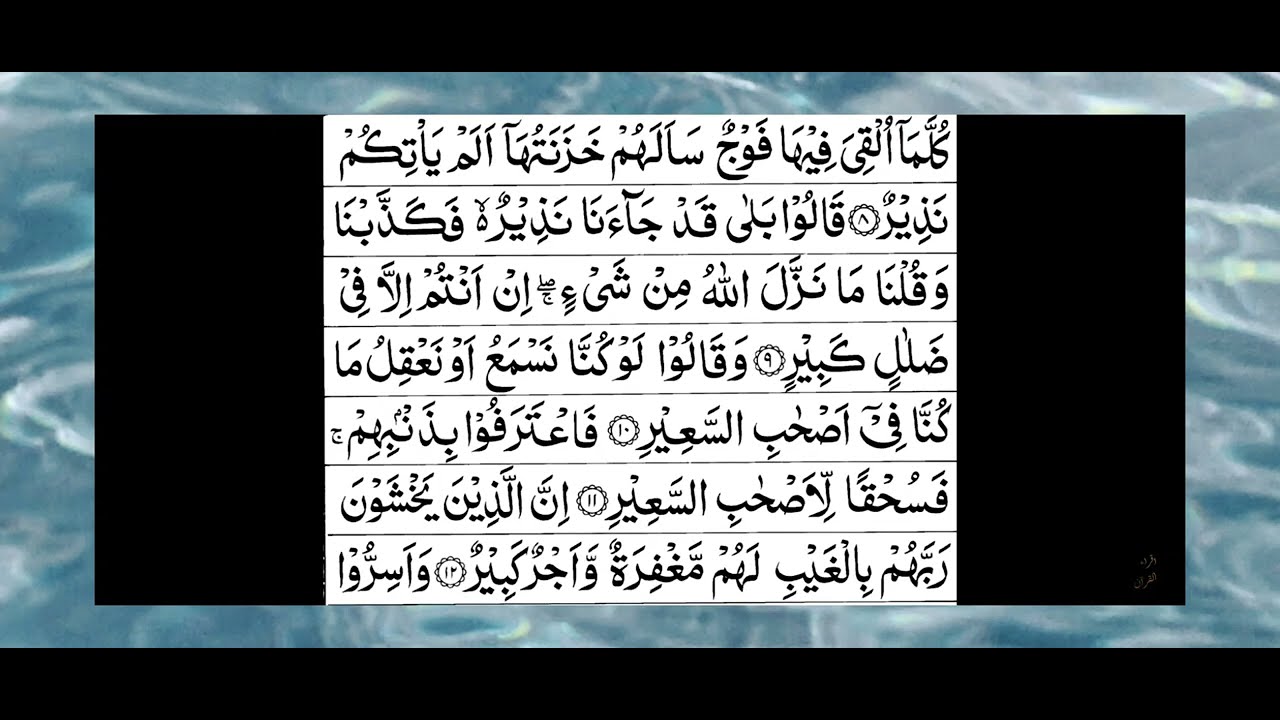 كُلَّمَاۤ اُلْقِیَ فِیْهَا فَوْجٌ سَاَلَهُمْ خَزَنَتُهَاۤ اَلَمْ یَاْتِكُمْ
نَذِیْرٌ ﴿۸﴾ قَالُوْا بَلٰی قَدْ جَآءَنَا نَذِیْرٌ ۬ۙ فَكَذَّبْنَا
وَ قُلْنَا مَا نَزَّلَ اللّٰهُ مِنْ شَیْءٍ ۖۚ اِنْ اَنْتُمْ اِلَّا فِیْ
ضَلٰلٍ كَبِیْرٍ ﴿۹﴾ وَ قَالُوْا لَوْ كُنَّا نَسْمَعُ اَوْ نَعْقِلُ مَا
كُنَّا فِیْۤ اَصْحٰبِ السَّعِیْرِ ﴿۱۰﴾ فَاعْتَرَفُوْا بِذَنْۢبِهِمْ ۚ
فَسُحْقًا لِّاَصْحٰبِ السَّعِیْرِ ﴿۱۱﴾ اِنَّ الَّذِیْنَ یَخْشَوْنَ
رَبَّهُمْ بِالْغَیْبِ لَهُمْ مَّغْفِرَةٌ وَّ اَجْرٌ كَبِیْرٌ ﴿۱۲﴾ وَ اَسِرُّوْا
القرآن